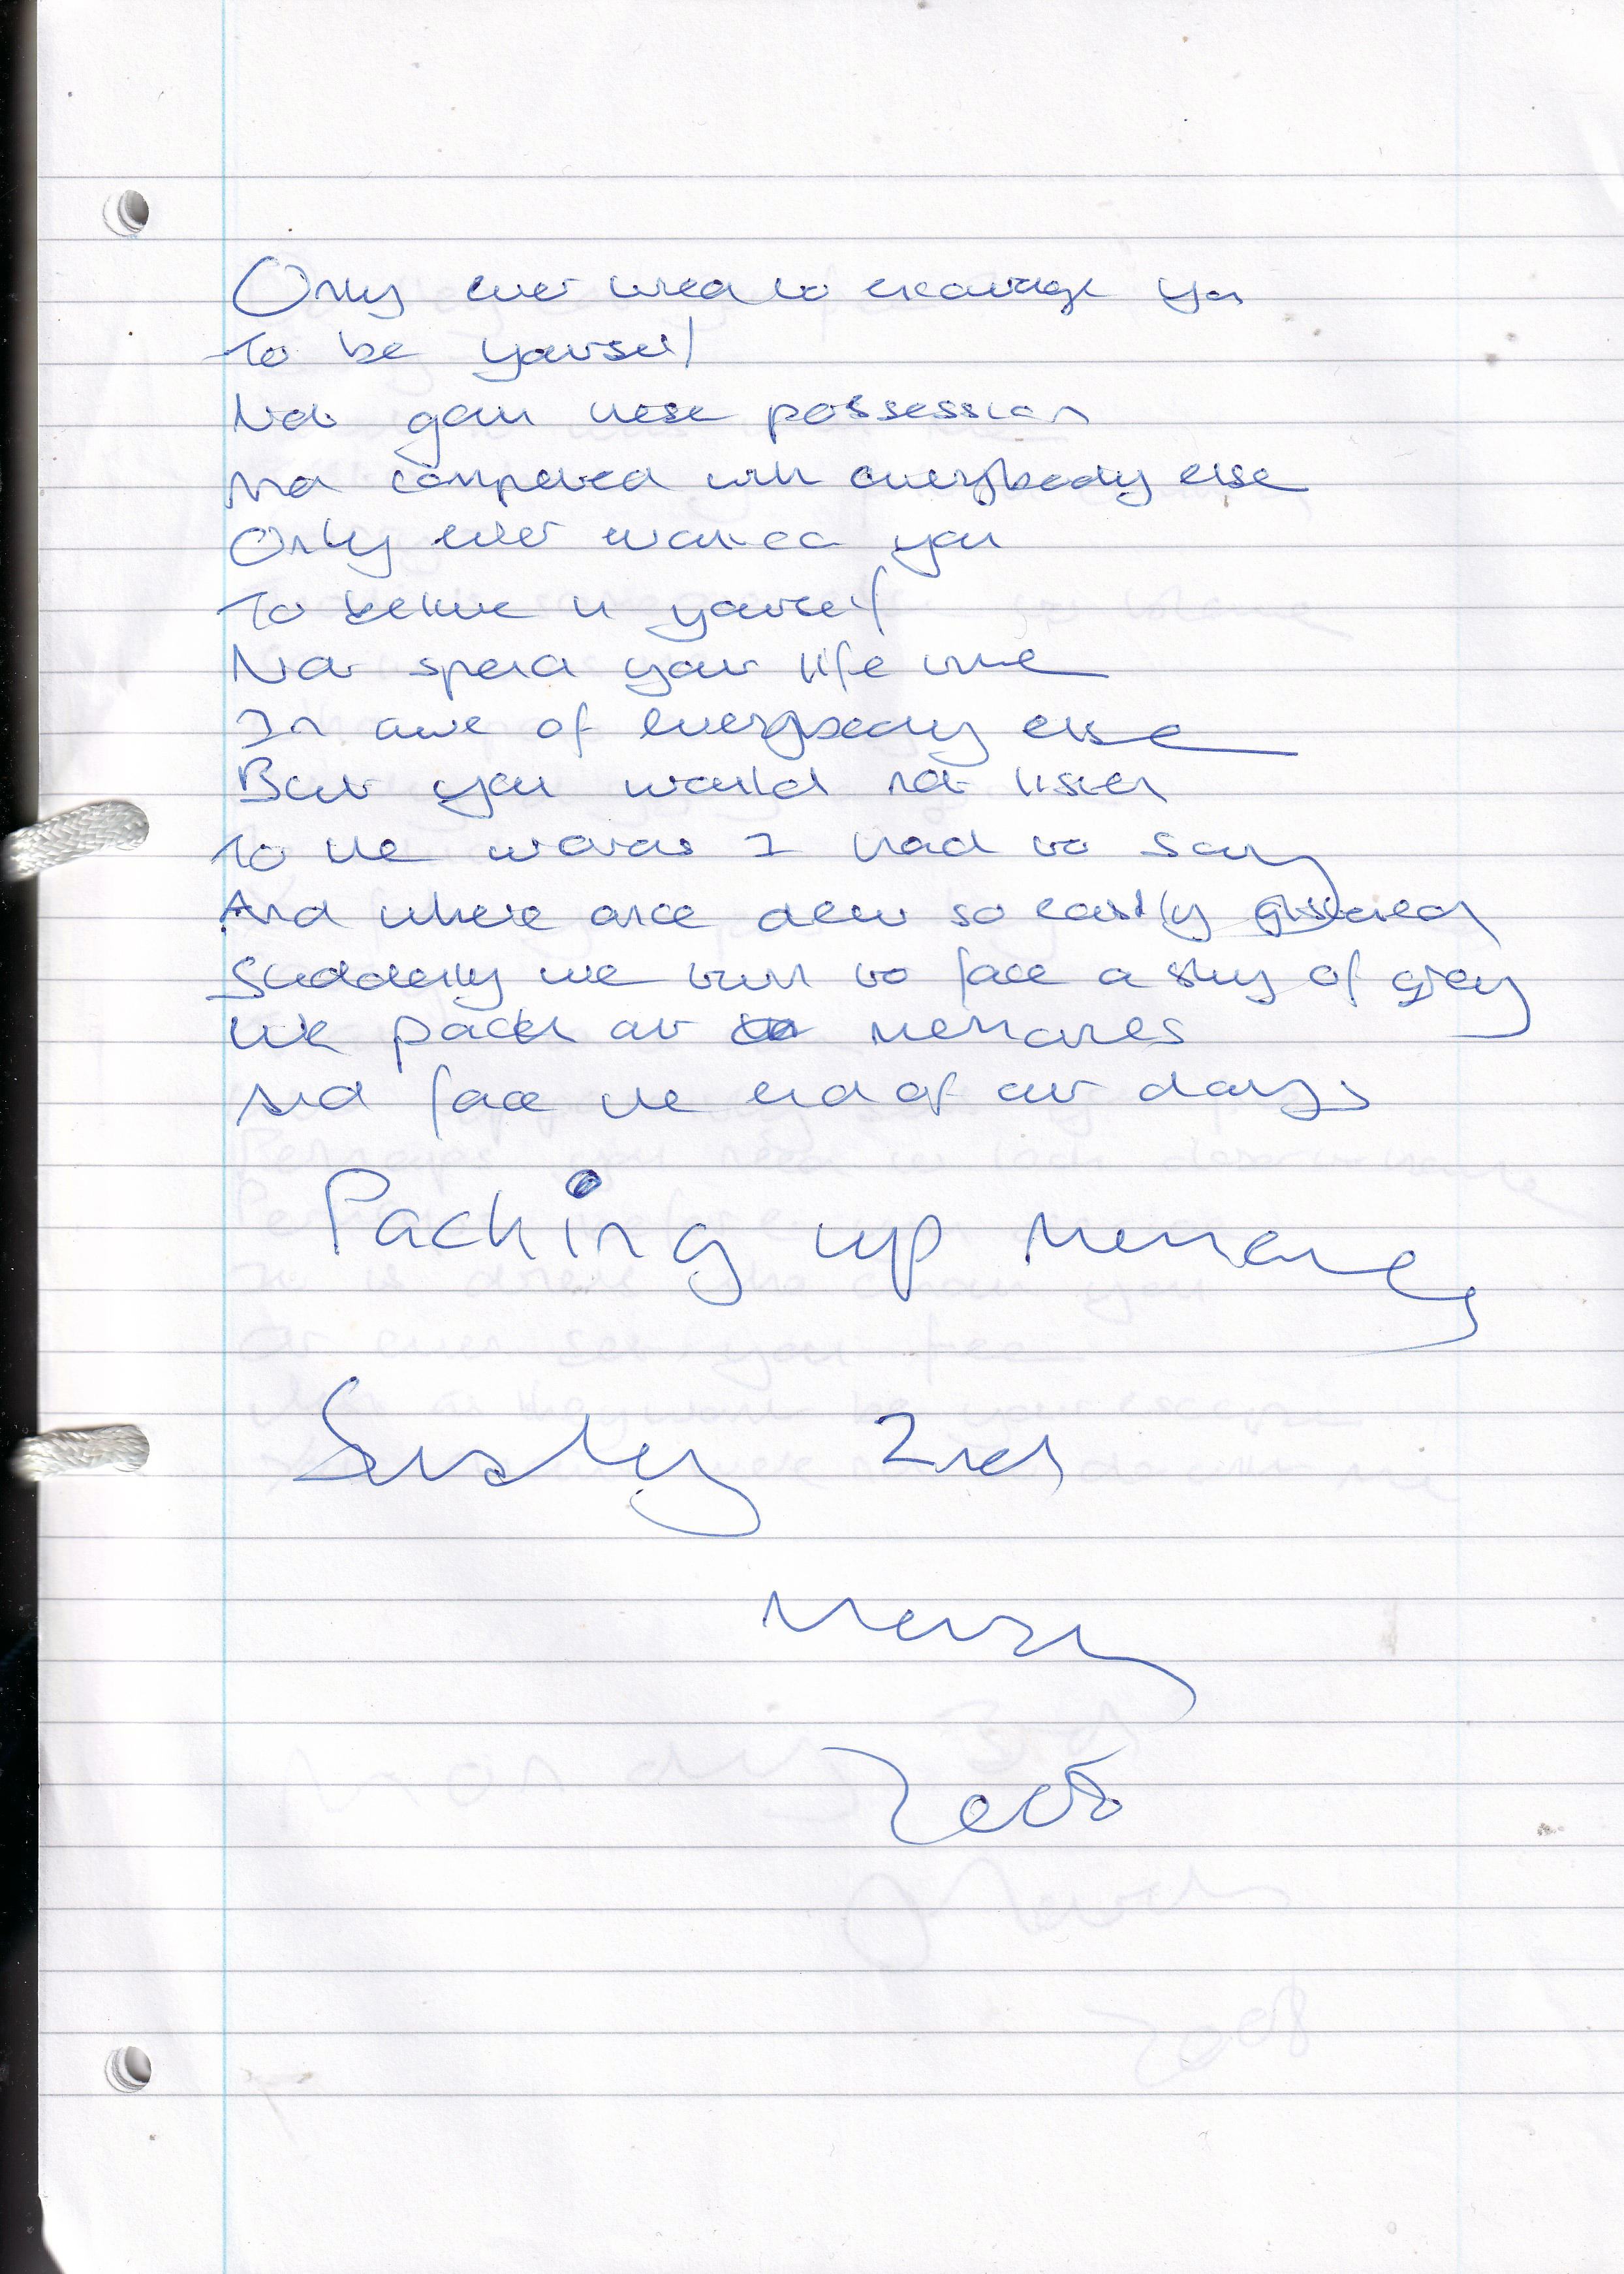 Only ever tried to encourage you
To be yourself
Not gain these possession
And compared with everybody else
Only ever wanted you
To believe in yourself
Not spend your life time
In awe of everybody else
But you would not listen
To the words I had to say
And where once dew so easily glistened
Suddenly we turn to face a sky of grey
We pack our memories
And face the end of our days
Packing up Memory
Sunday 2nd
March
2008